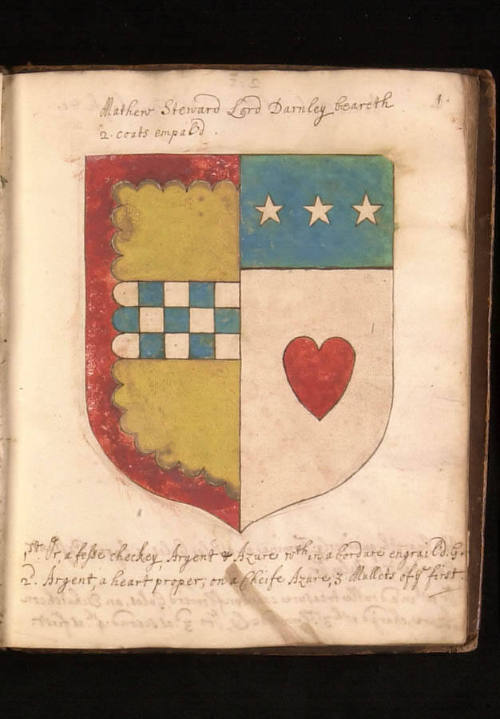 Mathew Steward Lord Darnley beareth 1.
2. coats empal'd.
1st. Or, a fesse checkey Argent & Azure wthin a bordure engrail'd. G.
2d. Argent, a heart proper, on a Cheife Azure, 3 Mullets of ye first.